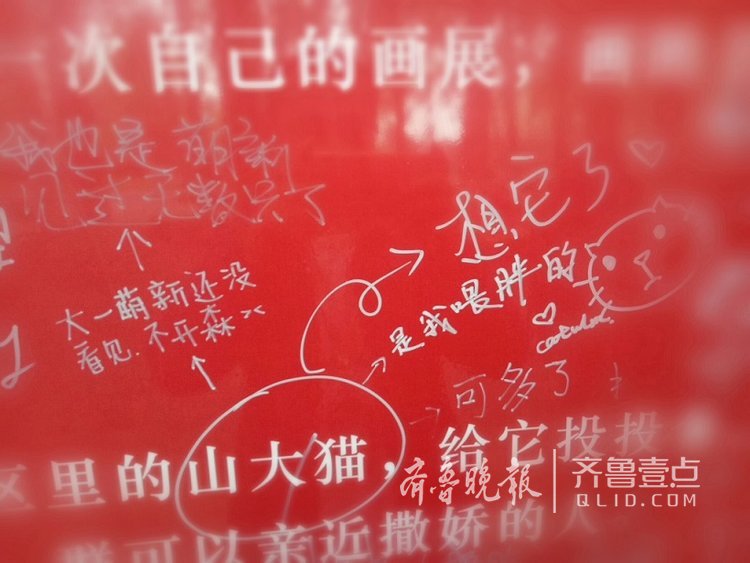 一次自己的画展，
我也是萌新
见过无数只了
想它了
大一萌新还没
看见.不开森
是我喂胖的
可多了
区里的山大猫，给它投投
群可以亲近撒娇的人
齐鲁晚报
齐鲁壹点
QLID.COM